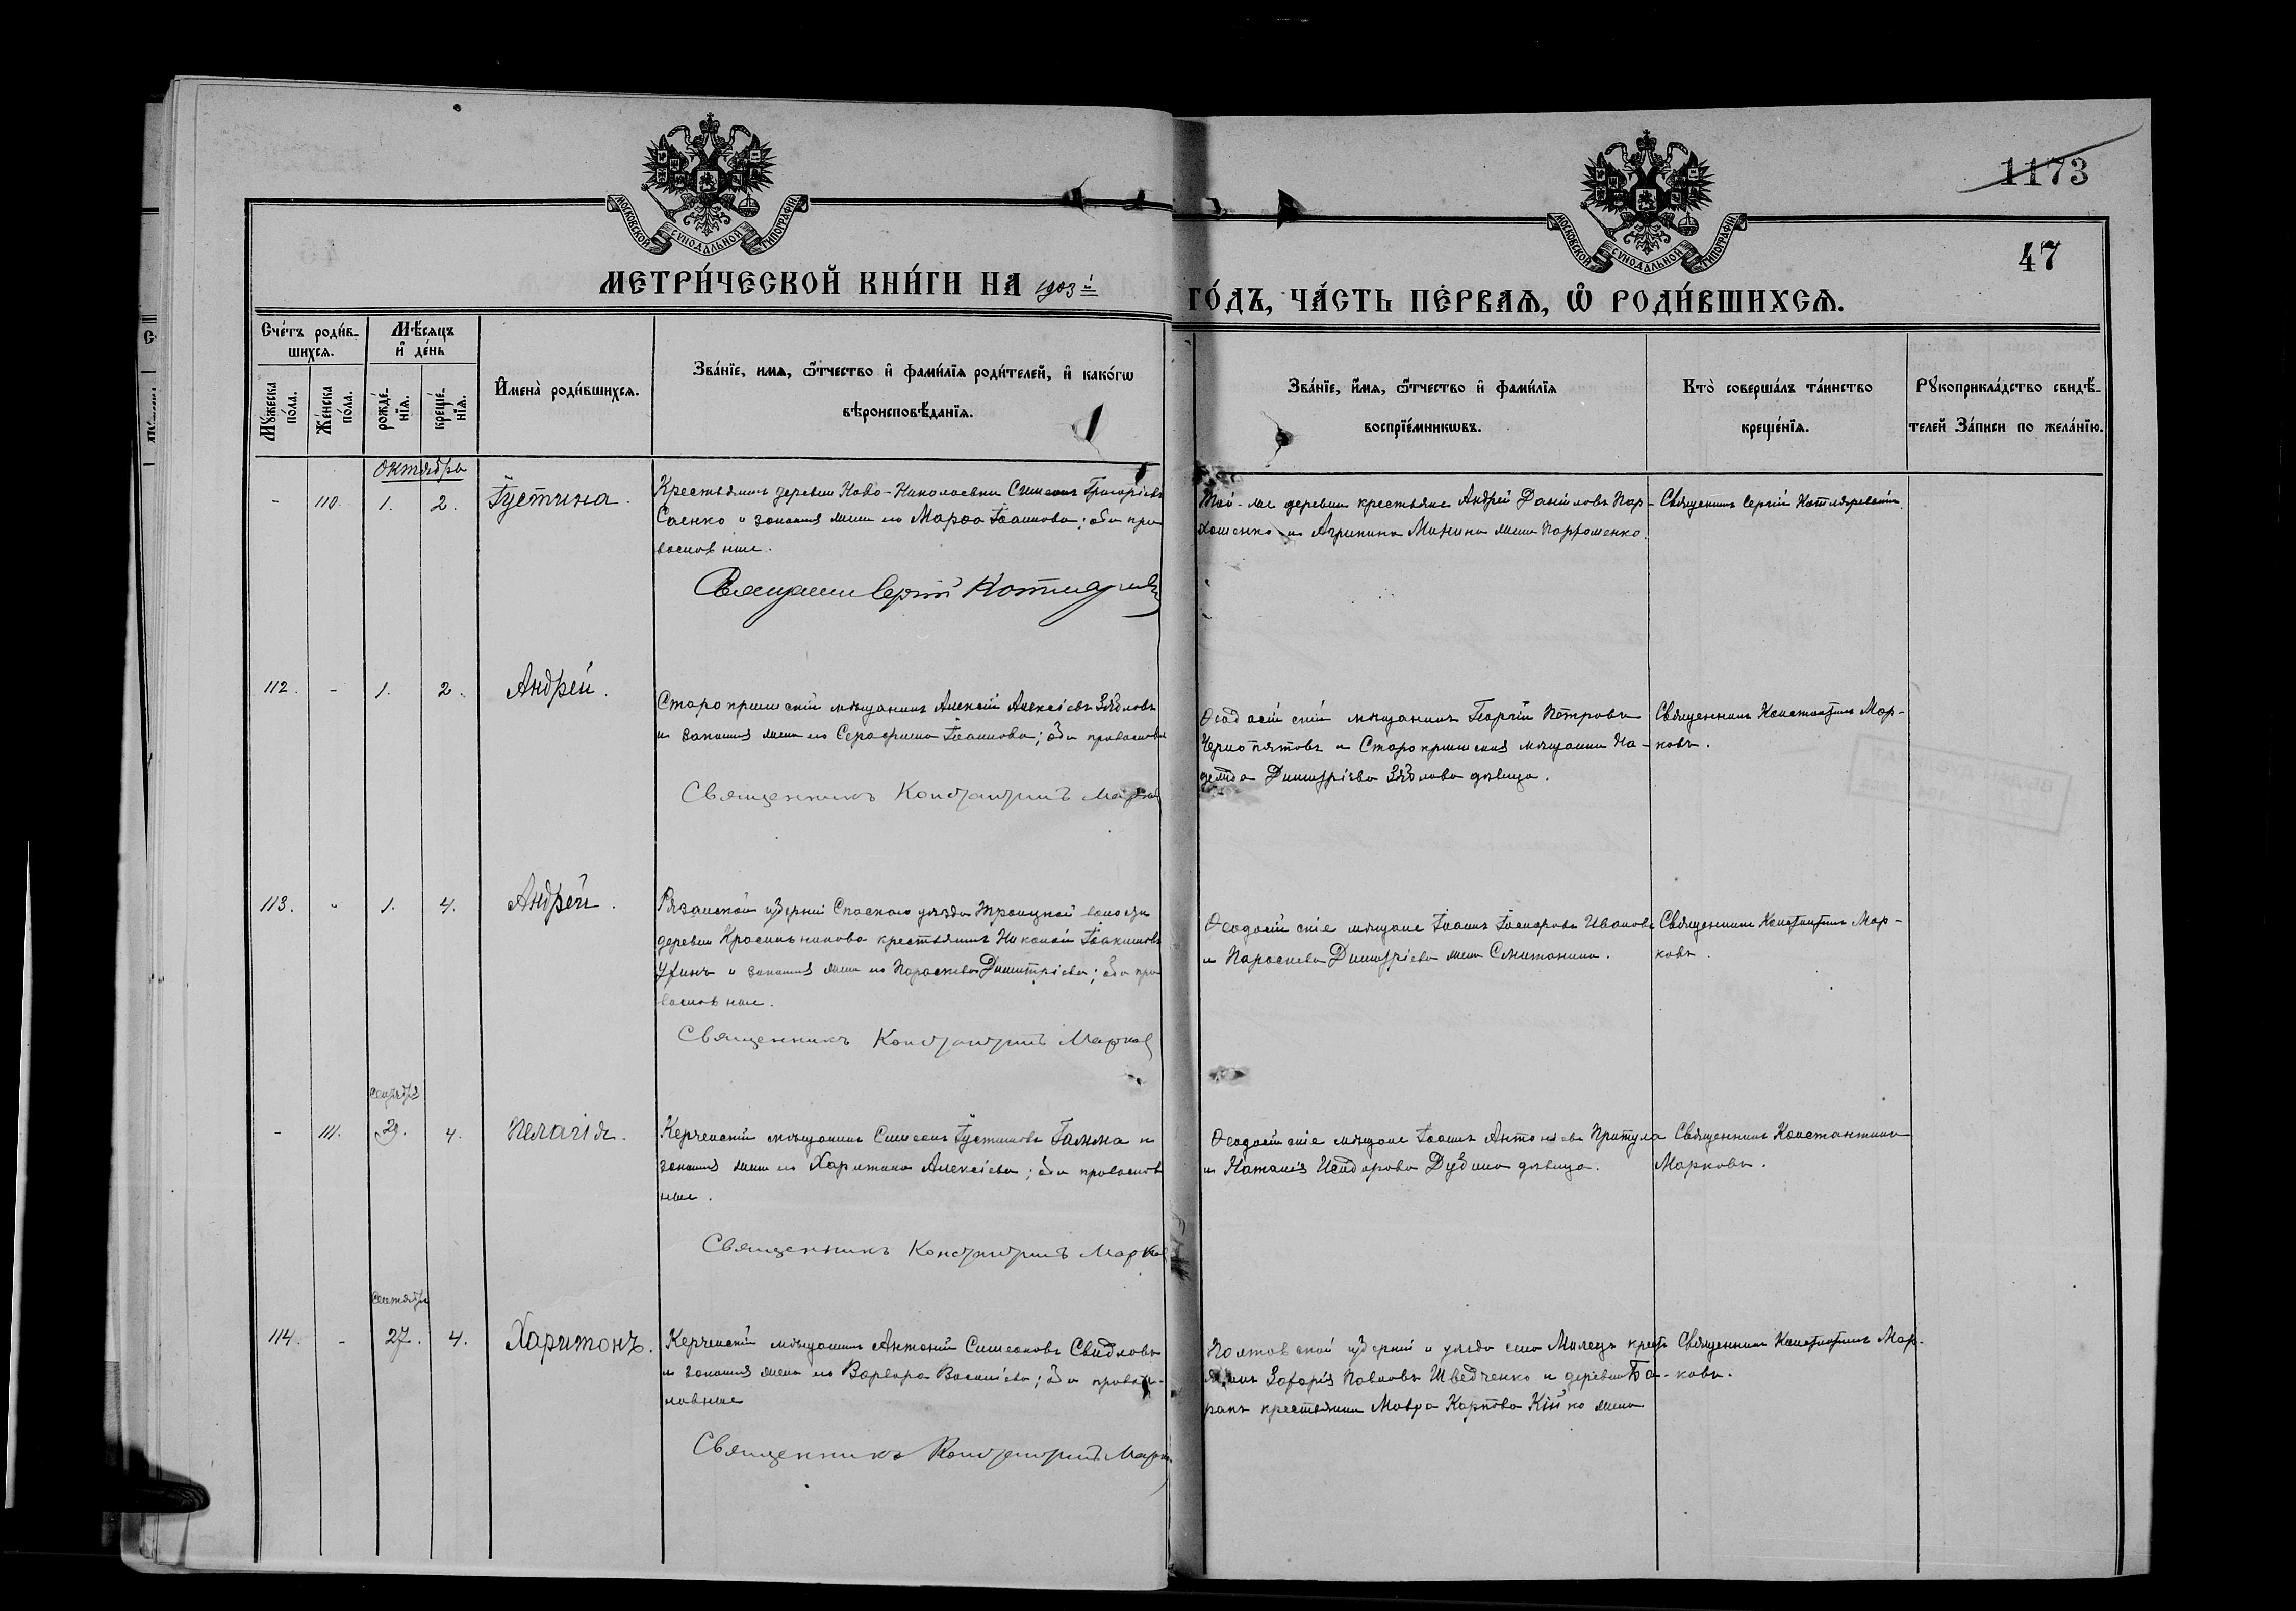 МОСКОВСКОЙ СУНОДАЛЬНОЙ ТИПОГРАФІИ
МОСКОВСКОЙ СУНОДАЛЬНОЙ ТИПОГРАФІИ
1173
47
МЕТРИ́ЧЕСКОЙ КНИ́ГИ НА 1903й
ГО́ДЪ, ЧА́СТЬ ПЕ́РВАѦ, Ѡ҆ РОДИ́ВШИХСѦ.
Сче́тъ роди́в-
шихсѧ.
Мѣ́сяцъ
и҆ де́нь
Мꙋ́жеска
по́ла.
Же́нска
по́ла.
рожде́-
нїѧ.
креще́-
нїѧ.
И҆мена̀ роди́вшихсѧ.
Зва́нїе, имѧ, ѻ҆́тчество и҆ фами́лїѧ роди́телей, и҆ како́гѡ
вѣроисповѣ́данїѧ.
Зва́нїе, и҆́мѧ, ѻ҆́тчество и҆ фами́лїѧ
воспрїе́мникѡвъ.
Кто̀ соверша́лъ та́инство
креще́нїѧ.
Рꙋкоприкла́дство свидѣ́-
телей За́писи по жела́нїю.
Октябрь
- 110. 1. 2. Іустина.
Крестьянинъ деревни Ново-Николаевки Симеонъ Григорьевъ
Саенко и законная жена его Марѳа Іоаннова; оба пра
вославные.
Священникъ Сергій Котляревскій
Той-же деревни крестьяне Андрей Даніиловъ Пар-
хоменко и Агрипина Минина жена Пархоменко.
Священникъ Сергій Котляревскій.
112. - 1. 2. Андрей.
Старокрымскій мѣщанинъ Алексій Алексіевъ Зябловъ
и законная жена его Серафима Іоаннова; оба православные
Священникъ Константинъ Марковъ
Ѳеодосійскій мѣщанинъ Георгій Петровъ
Чернопятовъ и Старокрымская мѣщанка На-
дежда Димитріева Зяблова дѣвица.
Священникъ Константинъ Мар-
ковъ.
113. „ 1. 4. Андрей.
Рязанской губерніи Спаскаго уѣзда Троицкой волости
деревни Красильниково крестьянинъ Николай Іоакимовъ
и законная жена его Параскева Димитріева; оба пра
вославные.
Священникъ Константинъ Марковъ
Ѳеодосійскіе мѣщане Іоаннъ Ивановъ
и Параскева Димитріева жена
Священникъ Константинъ Мар-
ковъ.
сентября
- 111. 29. 4. Пелагія.
Керченскій мѣщанинъ Симеонъ Іустиновъ Гамма и
законная жена его Харитина Алексіева; оба православ
ные.
Священникъ Константинъ Марковъ
Ѳеодосійскіе мѣщане Іоаннъ Антоніевъ Притула
и Наталія Исидорова Дубина дѣвица.
Священникъ Константинъ
Марковъ.
сентября
114. - 27. 4. Харитонъ.
Керченскій мѣщанинъ Антоній Симеоновъ Свидловъ
и законная жена его Варвара Василіева; оба правос-
лавные
Священникъ Константинъ Марковъ
Полтавской губерніи и уѣзда села Милецъ крест
янинъ Захарія Павловъ Шведченко и деревни Ба-
ракъ крестьянка Мавра Карпова Кійко жена
Священникъ Константинъ Мар-
ковъ.